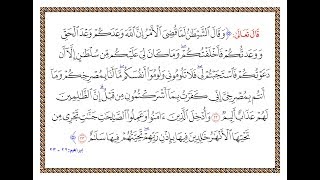 قَالَ تَعَالَى: ﴿ وَقَالَ ٱلشَّيْطَٰنُ لَمَّا قُضِيَ ٱلْأَمْرُ إِنَّ ٱللَّهَ وَعَدَكُمْ وَعْدَ ٱلْحَقِّ
وَوَعَدتُّكُمْ فَأَخْلَفْتُكُمْ وَمَا كَانَ لِيَ عَلَيْكُم مِّن سُلْطَٰنٍ إِلَّآ أَن
دَعَوْتُكُمْ فَٱسْتَجَبْتُمْ لِي فَلَا تَلُومُونِي وَلُومُوٓا۟ أَنفُسَكُم مَّآ أَنَا۠ بِمُصْرِخِكُمْ وَمَآ
أَنتُم بِمُصْرِخِيَّ إِنِّي كَفَرْتُ بِمَآ أَشْرَكْتُمُونِ مِن قَبْلُ إِنَّ ٱلظَّٰلِمِينَ
لَهُمْ عَذَابٌ أَلِيمٌ ٢٢ وَأُدْخِلَ ٱلَّذِينَ ءَامَنُوا۟ وَعَمِلُوا۟ ٱلصَّٰلِحَٰتِ جَنَّٰتٍ تَجْرِي مِن
تَحْتِهَا ٱلْأَنْهَٰرُ خَٰلِدِينَ فِيهَا بِإِذْنِ رَبِّهِمْ تَحِيَّتُهُمْ فِيهَا سَلَٰمٌ ٢٣ ﴾
إبراهيم: ٢٢ - ٢٣